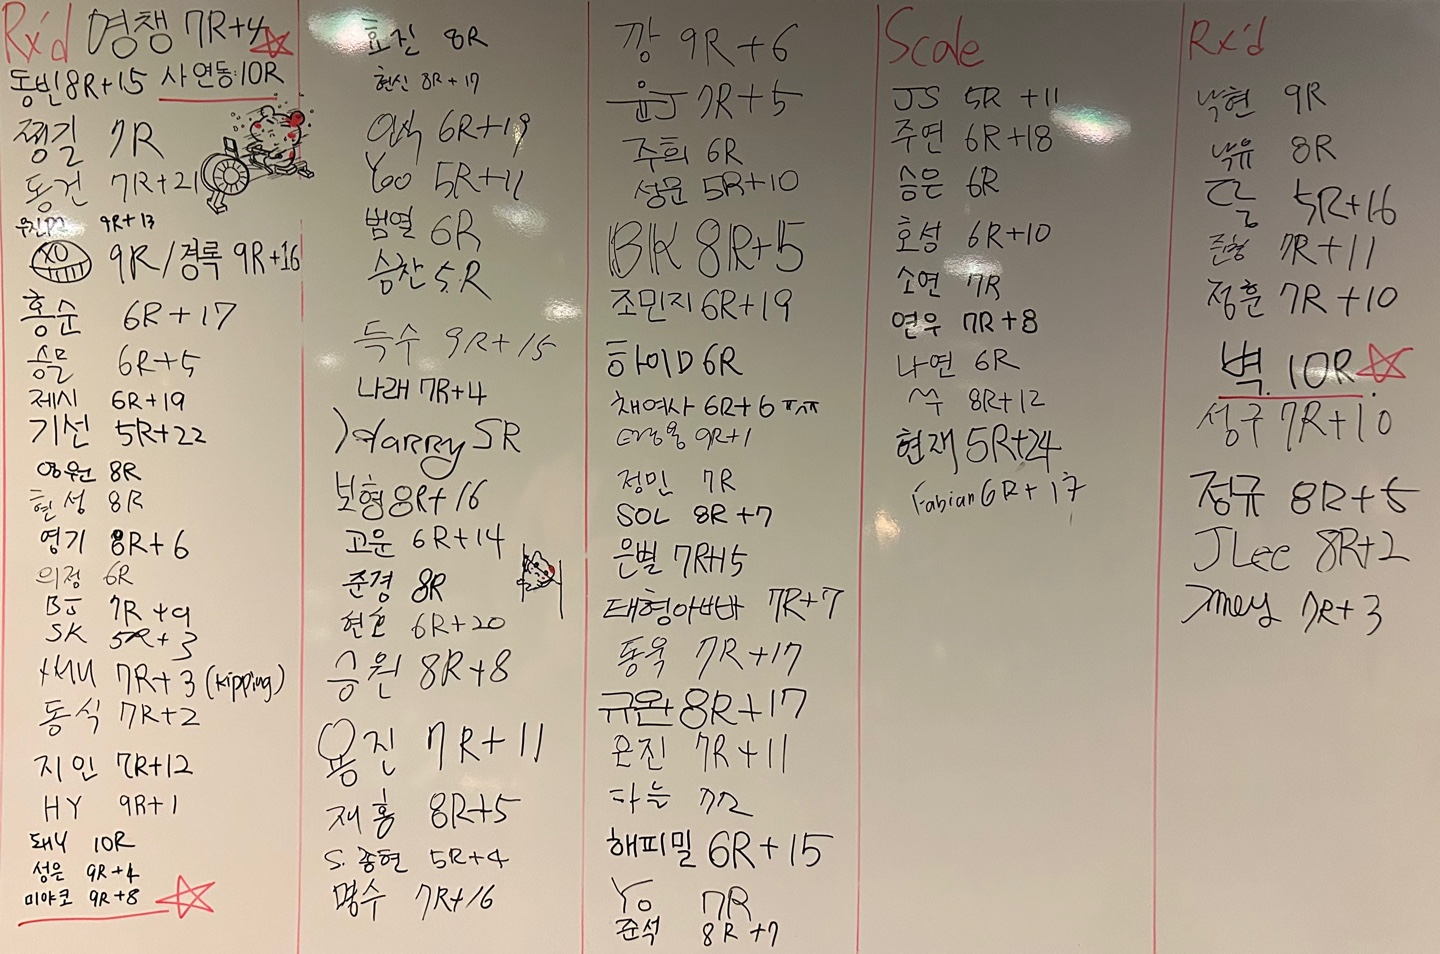 Rx'd 영챙 7R+4
동빈 8R+15 사연동:10R
찡길 7R
동건 7R+21
9R+13
XO 9R/경록 9R+16
홍순 6R+17
승믈 6R+5
제시 6R+19
기선 5R+22
영원 8R
현성 8R
영기 8R+6
의정 6R
BJ 7R+9
SK 5R+3
7R+3 (kipping)
동식 7R+2
지인 7R+12
HY 9R+1
돼니 10R
성은 9R+4
미야코 9R+8
효진 8R
현신 8R+17
6R+19
Yoo 5R+11
범열 6R
승찬 5R
득수 9R+15
나래 7R+4
Harry 5R
보형 8R+16
고운 6R+14
준경 8R
현호 6R+20
승원 8R+8
용진 7R+11
재홍 8R+5
S. 종현 5R+4
명수 7R+16
깡 9R+6
윤J 7R+5
주희 6R
성운 5R+10
BK 8R+5
조민지 6R+19
하이D 6R
채영사 6R+6 ㅠㅠ
9R+1
정민 7R
SOL 8R+7
은별 7R+15
태형아빠 7R+7
동욱 7R+17
규완 8R+17
은진 7R+11
다늘 7R
해피밀 6R+15
Yo 7R
준석 8R+7
Scale
JS 5R+11
주연 6R+18
승은 6R
호성 6R+10
소연 7R
연우 7R+8
나연 6R
8R+12
현재 5R+24
Fabian 6R+17
Rx'd
낙현 9R
낙유 8R
5R+16
준형 7R+11
정훈 7R+10
벽. 10R
성구 7R+10
정규 8R+5
JLee 8R+2
7R+3